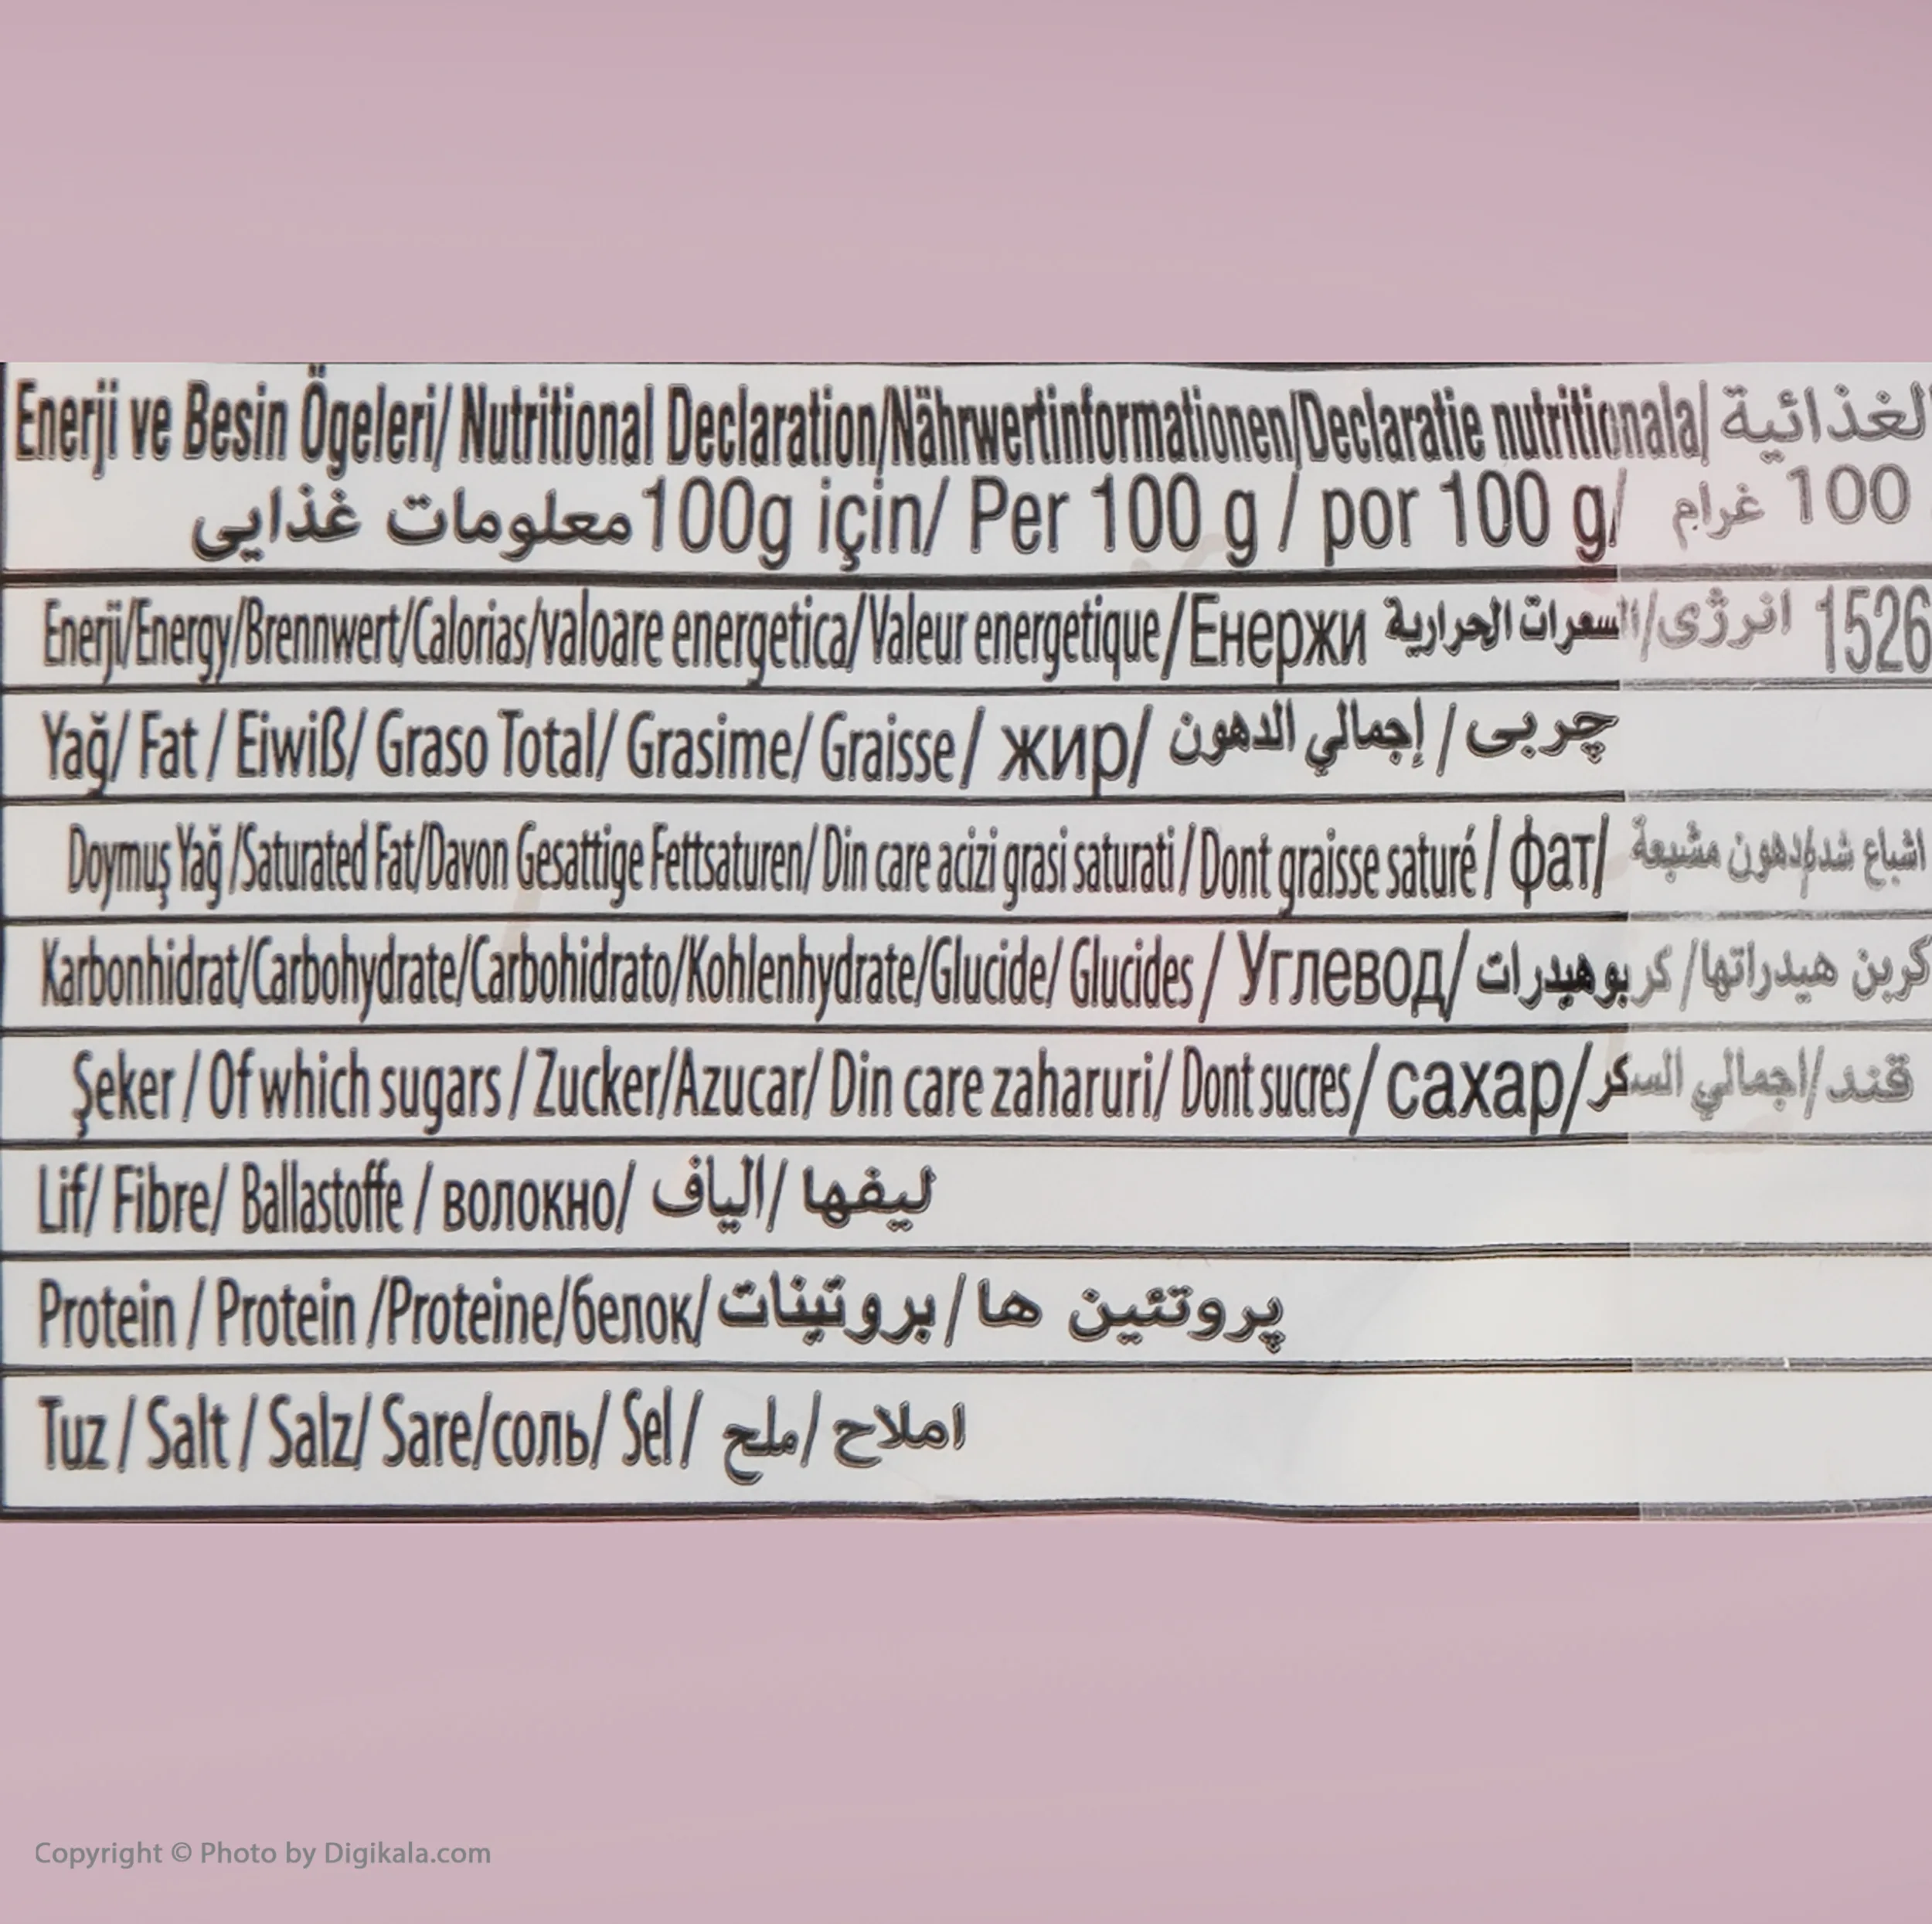 Enerji ve Besin Ögeleri/ Nutritional Declaration/Nährwertinformationen/Declaratie nutritionala/ الغذائية
معلومات غذایی 100g için/ Per 100 g / por 100 g/ 100 غرام
Enerji/Energy/Brennwert/Calorias/valoare energetica/Valeur energetique/Енержи السعرات الحرارية/انرژی 1526
Yağ/ Fat / Eiwiß/ Graso Total/ Grasime/ Graisse/ жир/ إجمالي الدهون / چربی
Doymuş Yağ /Saturated Fat/Davon Gesattige Fettsaturen/ Din care acizi grasi saturati / Dont graisse saturé / фат/ دهون مشبعة/اشباع شده
Karbonhidrat/Carbohydrate/Carbohidrato/Kohlenhydrate/Glucide/ Glucides / Углевод/ كربوهيدرات /کربن هیدراتها
Şeker / Of which sugars / Zucker/Azucar/ Din care zaharuri/ Dont sucres/ сахар/ اجمالي السكر/قند
Lif/ Fibre/ Ballastoffe / волокно/ الياف/ لیفها
Protein / Protein /Proteine/белок/ بروتينات/ پروتئین ها
Tuz / Salt / Salz/ Sare/соль/ Sel / ملح/ املاح
Copyright © Photo by Digikala.com